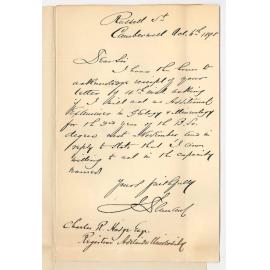 Russell St.
Camberwell Oct. 6th 1898
Dear Sir
I have the honor to
acknowledge receipt of your
letter of 4th inst. asking
if I will act as Additional
Examiner in Geology & Mineralogy
for the 3rd year of the B.Sc.
degree next November and in
reply to state that I am
willing to act in the capacity
named
Yours faithfully
Charles R. Hodge Esqr.
Registrar Adelaide University